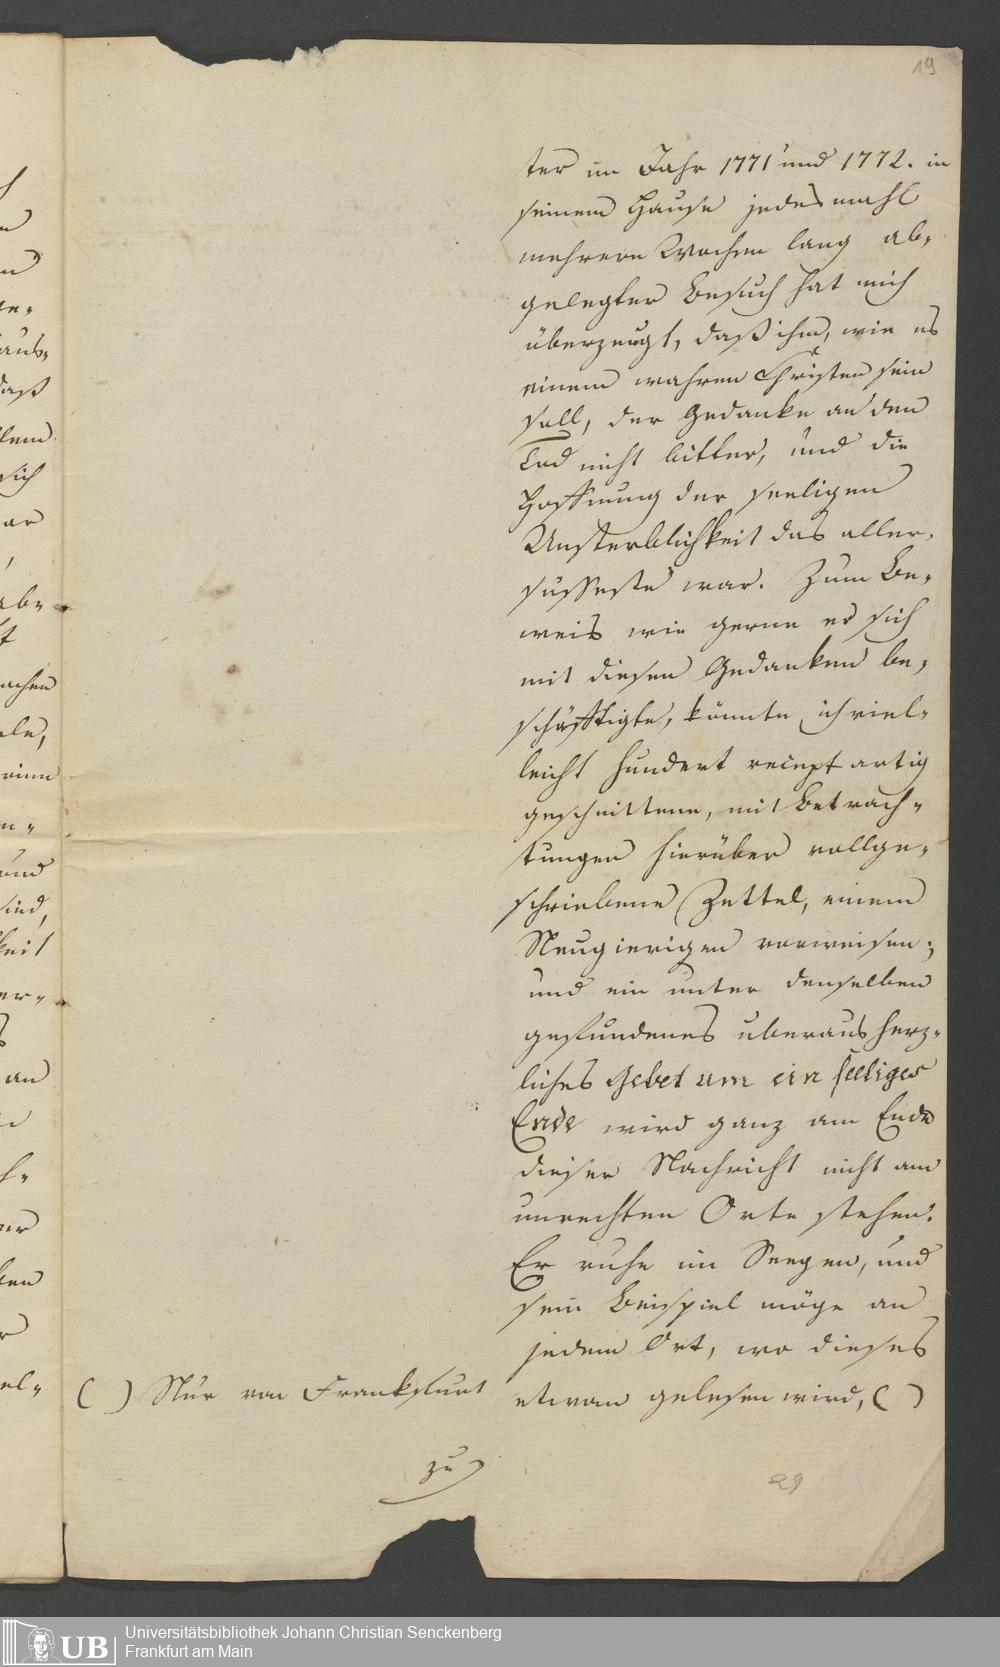 19
ter im Jahr 1771 und 1772. in
seinem Hause jedesmahl
mehrere Wochen lang ab-
gelegter Besuch hat mich
überzeugt, daß ihm, wie es
einem wahren Christen sein
soll, der Gedanke an den
Tod nicht bitter, und die
Hoffnung der seeligen
Unsterblichkeit das aller-
süsseste war. Zum Be-
weis wie gerne er sich
mit diesen Gedanken be-
schäfftigte, könnte ich viel-
leicht hundert recept artig
geschnittene, mit Betrach-
tungen hierüber vollge-
schriebene Zettel, einem
Neugierigen vorweisen;
und ein unter denselben
gefundenes uberaus herz-
liches Gebet um ein seeliges
Ende wird ganz am Ende
dieser Nachricht nicht am
unrechten Orte stehen.
Er ruhe im Seegen, und
sein Beispiel möge an
jedem Ort, wo dieses
etwan gelesen wird, ( )
( ) Nur von Frankfurt
zu
29
UB
Universitätsbibliothek Johann Christian Senckenberg
Frankfurt am Main